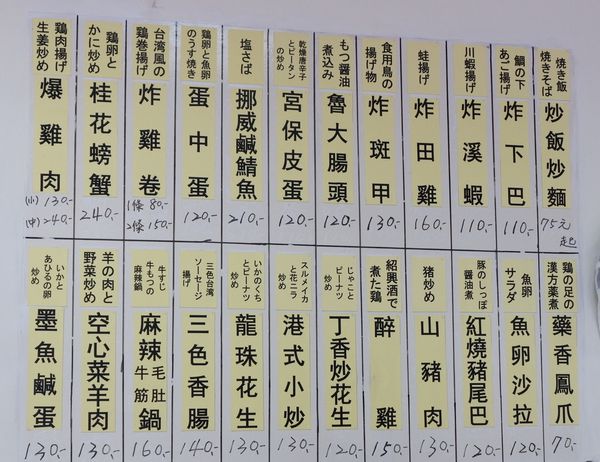 焼き飯
焼きそば
炒飯炒麵
75元
起
鯛の下
あご揚げ
炸下巴
110,-
川蝦揚げ
炸溪蝦
110,-
蛙揚げ
炸田雞
160,-
食用鳥の
揚げ物
炸斑甲
130,-
もつ醤油
煮込み
魯大腸頭
120,-
乾燥唐辛子
とピータン
の炒め
宮保皮蛋
120,-
塩さば
挪威鹹鯖魚
210,-
鶏卵と魚卵
のうす焼き
蛋中蛋
120,-
台湾風の
鶏巻揚げ
炸雞卷
1條 80,-
2條 150,-
鶏卵と
かに炒め
桂花螃蟹
240,-
鶏肉揚げ
生姜炒め
爆雞肉
(小) 130,-
(中) 240,-
鶏の足の
漢方薬煮
藥香鳳爪
70,-
魚卵
サラダ
魚卵沙拉
120,-
豚のしっぽ
醤油煮
紅燒豬尾巴
120,-
猪炒め
山豬肉
130,-
紹興酒で
煮た鶏
醉雞
150,-
じゃこと
ピーナツ
炒め
丁香炒花生
120,-
スルメイカ
と花ニラ
炒め
港式小炒
130,-
いかのくち
とピーナツ
炒め
龍珠花生
130,-
三色台湾
ソーセージ
揚げ
三色香腸
140,-
牛すじ
牛もつの
麻辣鍋
麻辣牛筋毛肚鍋
160,-
羊の肉と
野菜炒め
空心菜羊肉
130,-
いかと
あひるの卵
炒め
墨魚鹹蛋
130,-